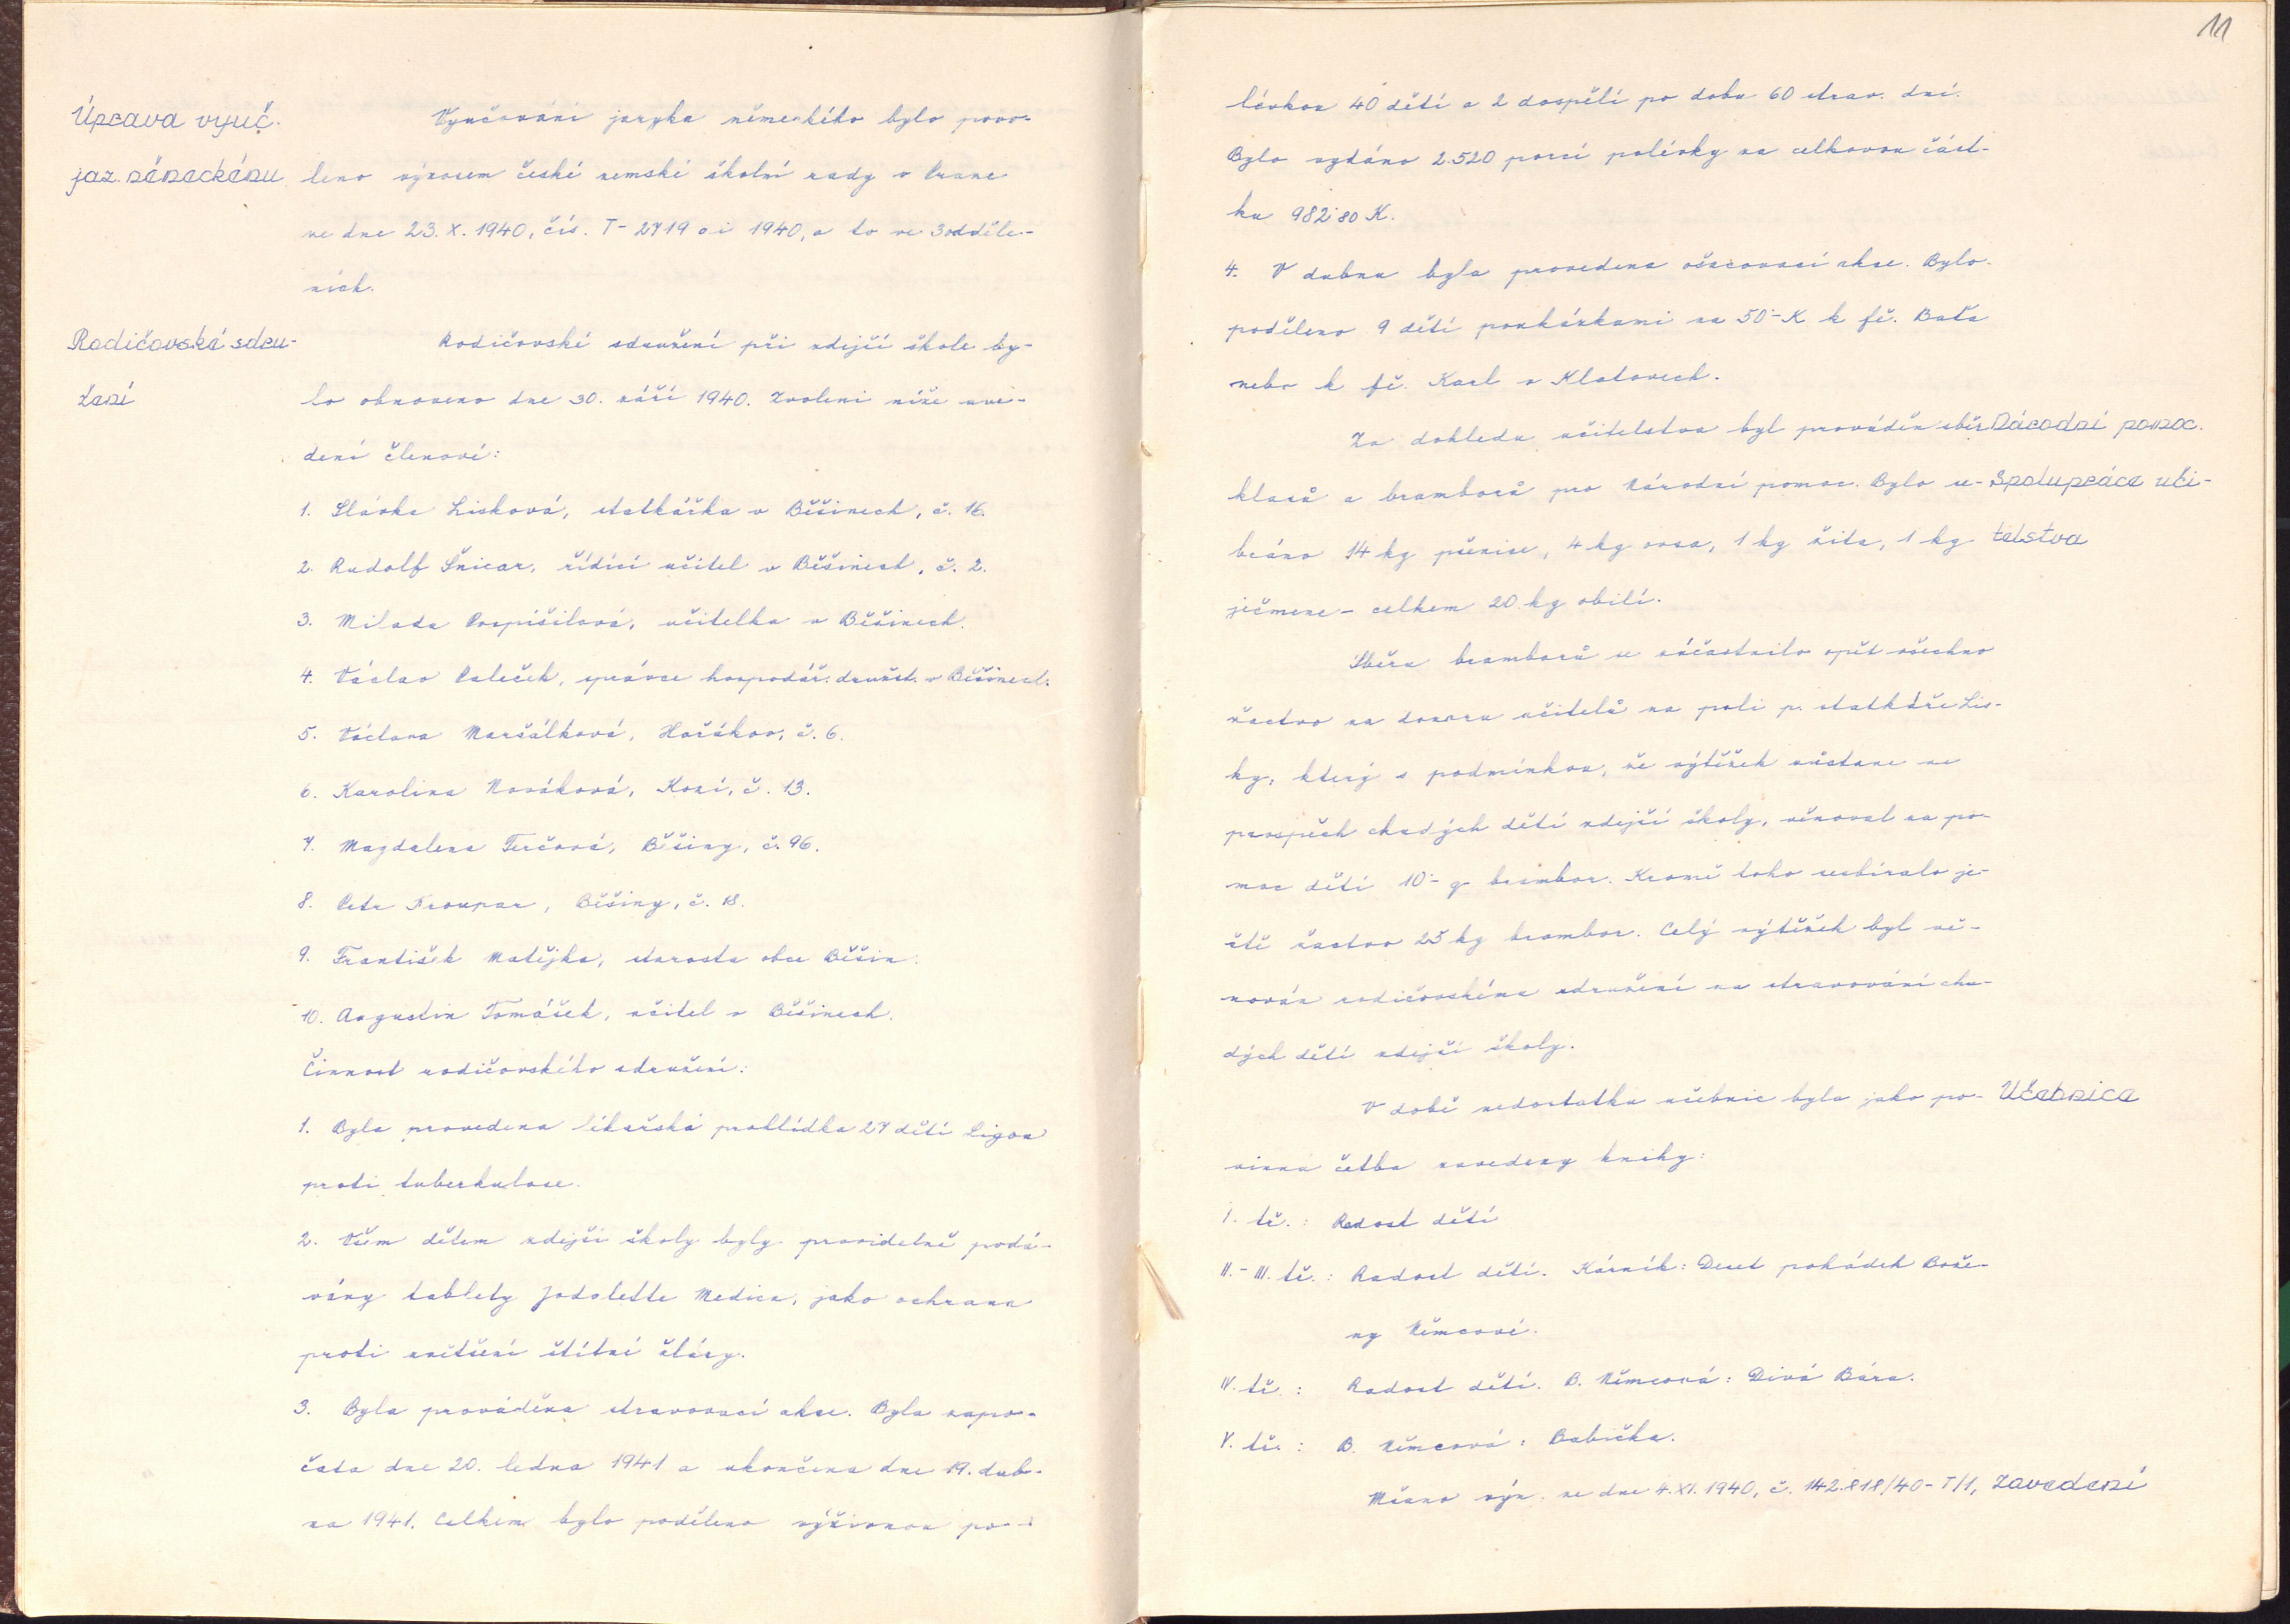 Úprava vyuč.
jaz. německému
Vyučování jazyka německého bylo povo-
leno výnosem české zemské školní rady v Praze
ze dne 23. X. 1940, čís. T- 2719 ai 1940, a to ve 3 odděle-
ních.
Rodičovské sdru-
žení
Rodičovské sdružení při zdejší škole by-
lo obnoveno dne 30. září 1940. Zvoleni níže uve-
dení členové:
1. Slávka Lisková, statkářka v Běšinech, č. 16.
2. Rudolf Šnicar, řídící učitel v Běšinech, č. 2.
3. Milada Pospíšilová, učitelka v Běšinech.
4. Václav Paleček, správce hospodář. družst. v Běšinech.
5. Václava Maršálková, Hořákov, č. 6.
6. Karolina Nováková, Kozí, č. 13.
7. Magdalena Terčová, Běšiny, č. 96.
8. Petr Froupar, Běšiny, č. 18.
9. František Matějka, starosta obce Běšin.
10. Augustin Tomášek, učitel v Běšinech.
Činnost rodičovského sdružení:
1. Byla provedena lékařská prohlídka 27 dětí Ligou
proti tuberkulose.
2. Všem dětem zdejší školy byly pravidelně podá-
vány tablety Jodolette Medica, jako ochrana
proti zvětšení štítné žlázy.
3. Byla prováděna stravovací akce. Byla zapo-
čata dne 20. ledna 1941 a ukončena dne 19. dub-
na 1941. Celkem bylo poděleno výživnou po-
11
lévkou 40 dětí a 2 dospělí po dobu 60 strav. dní.
Bylo vydáno 2.520 porcí polévky za celkovou část-
ku 982·80 K.
4. V dubnu byla provedena ošacovací akce. Bylo
poděleno 9 dětí poukázkami na 50·- K k fě. Baťa
nebo k fě. Karl v Klatovech.
Za dohledu učitelstva byl prováděn sběr Národní pomoc.
klasů a bramborů pro Národní pomoc. Bylo se- Spolupráce uči-
bráno 14 kg pšenice, 4 kg ovsa, 1 kg žita, 1 kg telstva
ječmene - celkem 20 kg obilí.
Sběru bramborů se zúčastnilo opět všechno
žactvo za dozoru učitelů na poli p. statkáře Lis-
ky, který s podmínkou, že výtěžek zůstane ve
prospěch chudých dětí zdejší školy, věnoval za po-
moc dětí 10·- q brambor. Kromě toho sesbíralo je-
ště žactvo 25 kg brambor. Celý výtěžek byl vě-
nován rodičovskému sdružení na stravování chu-
dých dětí zdejší školy.
V době nedostatku učebnic byla jako po- Učebnice
vinná četba zavedeny knihy:
I. tř.: Radost dětí
II. - III. tř.: Radost dětí. Kárník: Deset pohádek Bože-
ny Němcové.
IV. tř.: Radost dětí. B. Němcová: Divá Bára.
V. tř.: B. Němcová: Babička.
Mšano výn. ze dne 4. XI. 1940, č. 142.818/40- T/1, Zavedení